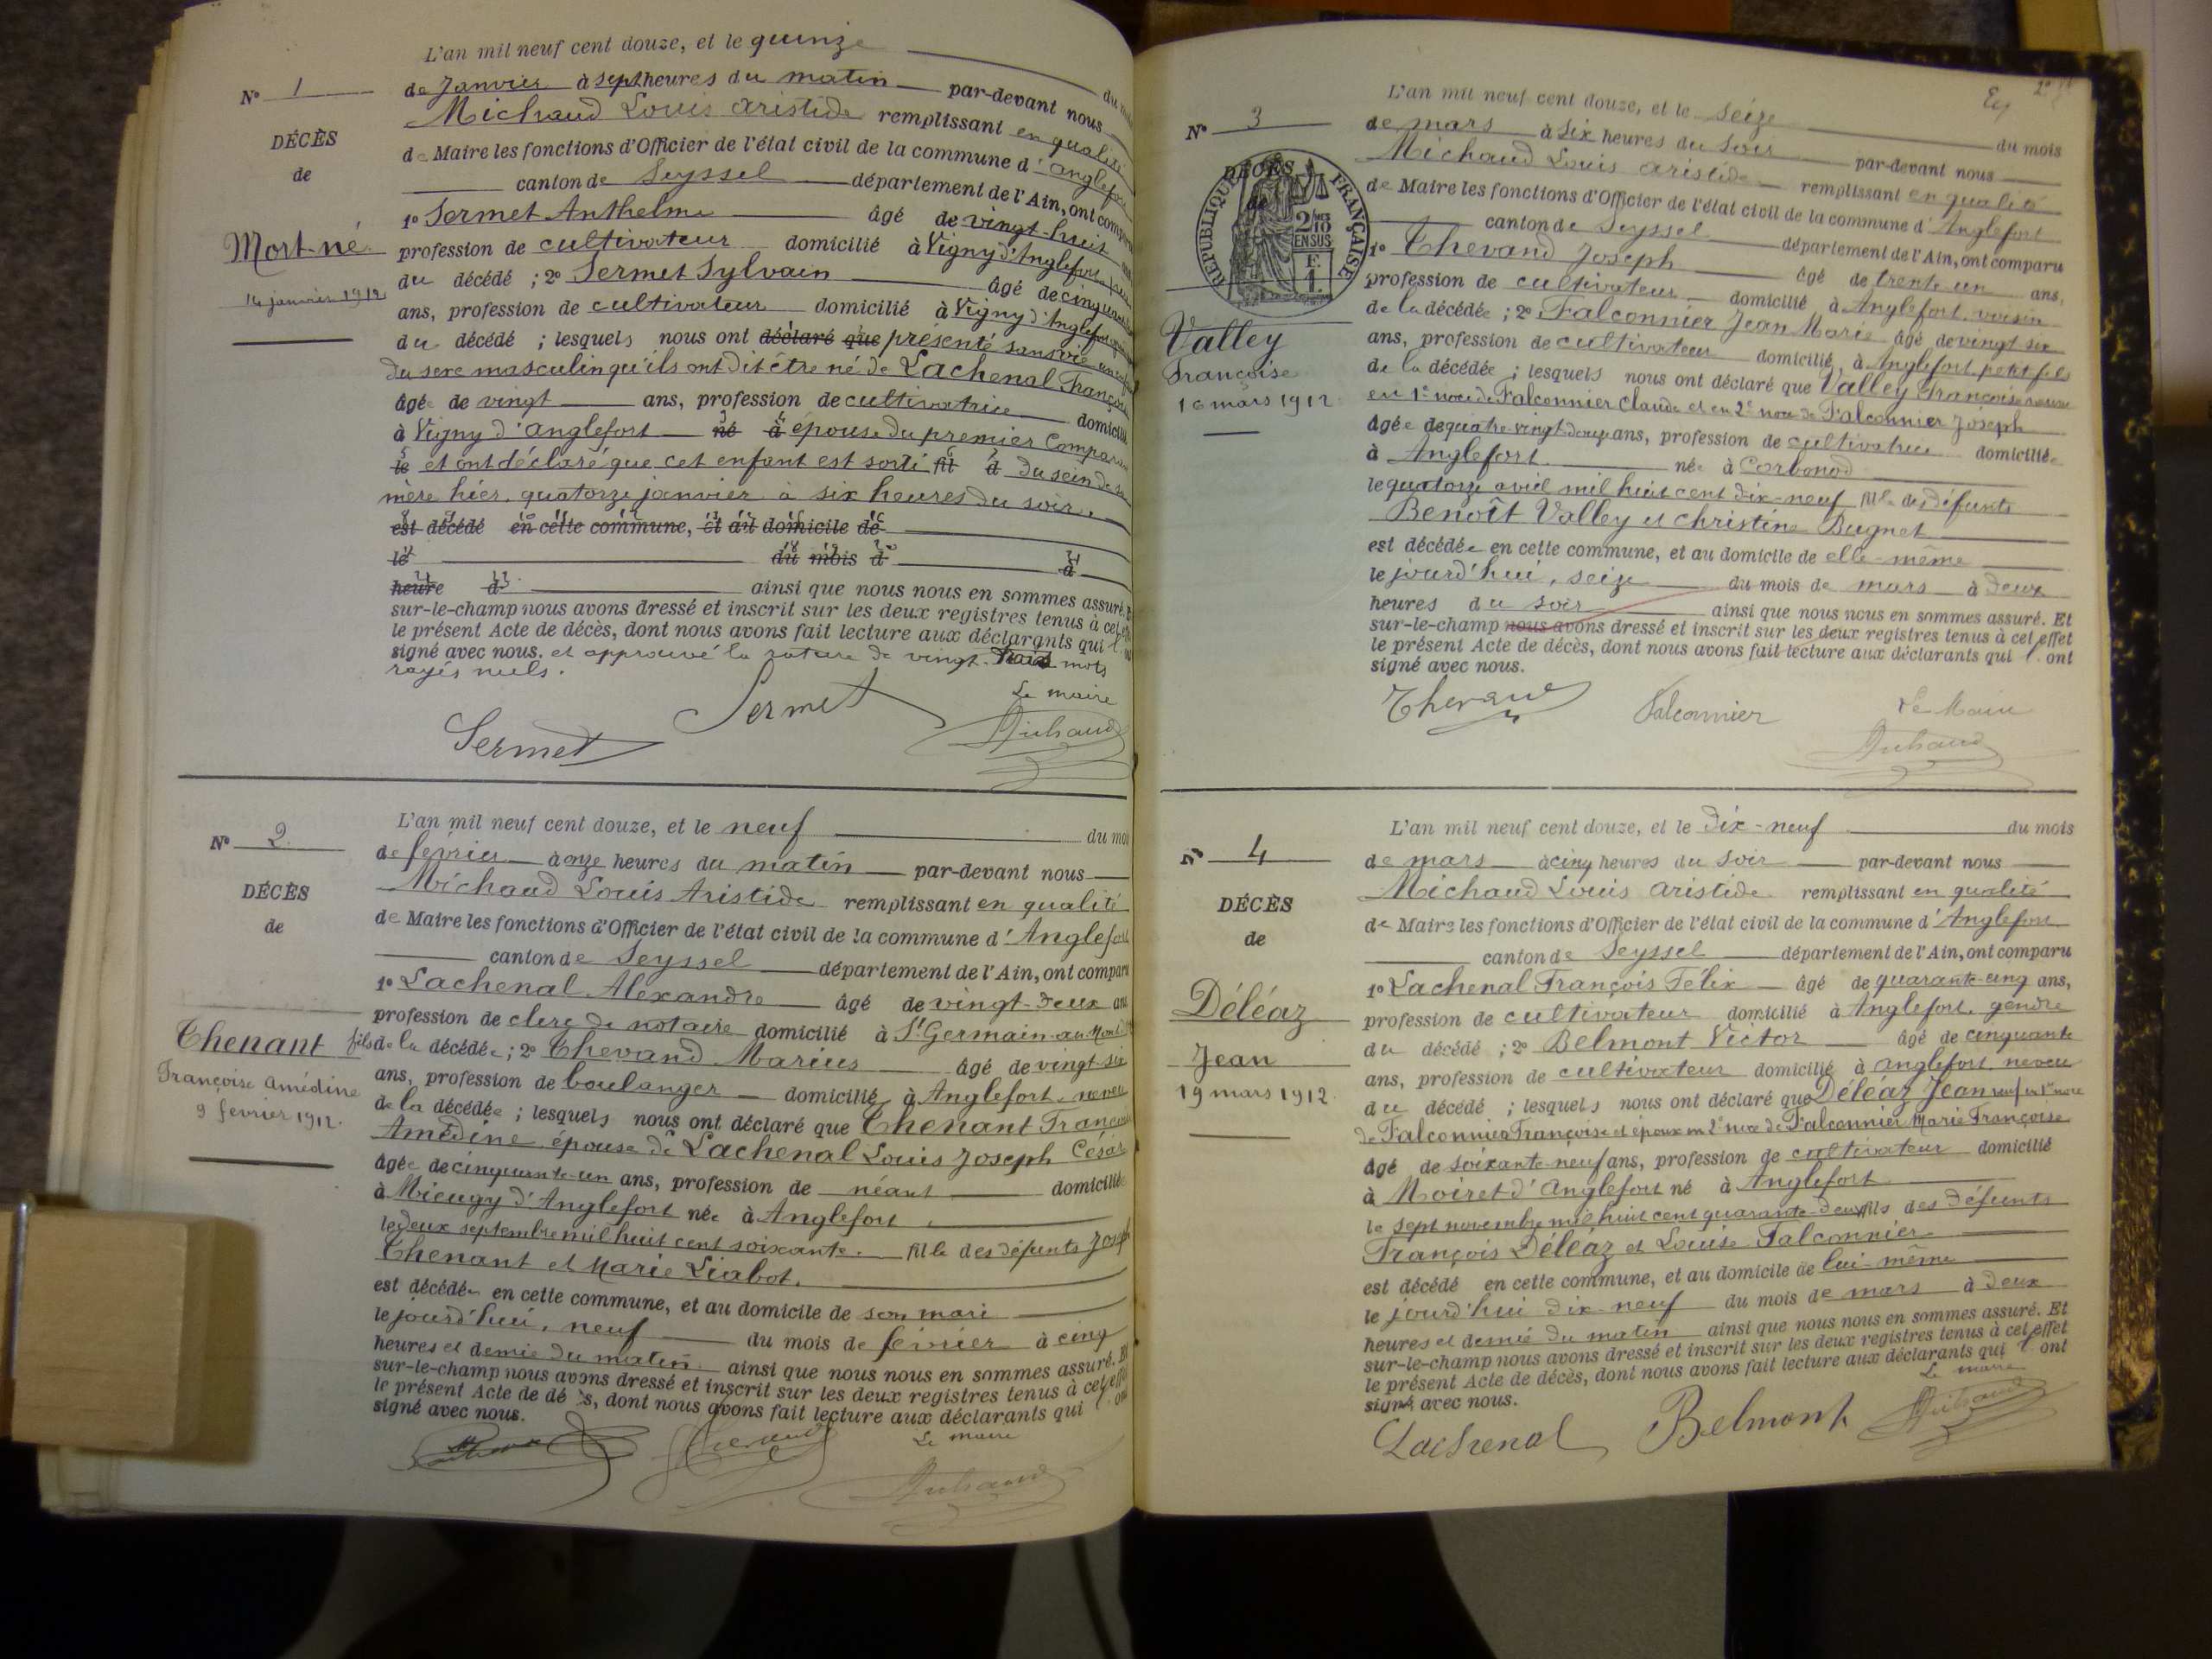 N° 1
DÉCÈS
de
Mort-né
14 janvier 1912
L'an mil neuf cent douze, et le quinze
de Janvier à sept heures du matin par-devant nous
Michaud Louis Aristide remplissant en qualité
de Maire les fonctions d'Officier de l'état civil de la commune d'Anglefort
canton de Seyssel département de l'Ain, ont comparu
1° Sermet Anthelme âgé de vingt-huit
profession de cultivateur domicilié à Vigny d'Anglefort
du décédé ; 2° Sermet Sylvain âgé de
ans, profession de cultivateur domicilié à Vigny d'Anglefort
du décédé ; lesquels nous ont déclaré que présenté sans vie
du sexe masculin qu'ils ont dit être né de Lachenal Françoise
âgée de vingt ans, profession de cultivatrice domicilié
à Vigny d'Anglefort né à épouse du premier Comparant
le et ont déclaré que cet enfant est sorti fil d du sein de sa
mère hier, quatorze janvier à six heures du soir
est décédé en cette commune, et au domicile de
le du mois d à
heure d ainsi que nous nous en sommes assuré. Et
sur-le-champ nous avons dressé et inscrit sur les deux registres tenus à cet effet
le présent Acte de décès, dont nous avons fait lecture aux déclarants qui l'ont
signé avec nous. et approuvé la rature de vingt-trois mots
rayés nuls.
Sermet Sermet Le maire
Michaud
N° 2
DÉCÈS
de
Thenant
Françoise Amédine
9 février 1912.
L'an mil neuf cent douze, et le neuf du mois
de février à onze heures du matin par-devant nous
Michaud Louis Aristide remplissant en qualité
de Maire les fonctions d'Officier de l'état civil de la commune d'Anglefort
canton de Seyssel département de l'Ain, ont comparu
1° Lachenal Alexandre âgé de vingt-deux ans
profession de clerc de notaire domicilié à St Germain-au-Mont
fils de la décédée ; 2° Thevand Marius âgé de vingt-six
ans, profession de boulanger domicilié à Anglefort, neveu
de la décédée ; lesquels nous ont déclaré que Thenant Françoise
Amédine épouse de Lachenal Louis Joseph César
âgée de cinquante-un ans, profession de néant domiciliée
à Mieugy d'Anglefort née à Anglefort
le deux septembre mil huit cent soixante. fille des défunts Joseph
Thenant et Marie Liabot.
est décédée en cette commune, et au domicile de son mari
le jourd'hui, neuf du mois de février à cinq
heures et demie du matin ainsi que nous nous en sommes assuré. Et
sur-le-champ nous avons dressé et inscrit sur les deux registres tenus à cet effet
le présent Acte de dé s, dont nous avons fait lecture aux déclarants qui l'ont
signé avec nous.
Le maire
Michaud
N° 3
DÉCÈS
de
RÉPUBLIQUE FRANÇAISE
2/10
EN SUS
F.
1.
Valley
Françoise
16 mars 1912
L'an mil neuf cent douze, et le seize du mois
de mars à six heures du soir par-devant nous
Michaud Louis Aristide remplissant en qualité
de Maire les fonctions d'Officier de l'état civil de la commune d'Anglefort
canton de Seyssel département de l'Ain, ont comparu
1° Thevand Joseph âgé de trente-un ans,
profession de cultivateur domicilié à Anglefort, voisin
de la décédée ; 2° Falconnier Jean Marie âgé de vingt six
ans, profession de cultivateur domicilié à Anglefort, petit fils
de la décédée ; lesquels nous ont déclaré que Valley Françoise veuve
en 1e noce de Falconnier Claude et en 2e noce de Falconnier Joseph
âgée de quatre vingt douze ans, profession de cultivatrice domiciliée
à Anglefort née à Corbonod
le quatorze avril mil huit cent dix-neuf fille des défunts
Benoît Valley et Christine Bugnet
est décédée en cette commune, et au domicile de elle-même
le jourd'hui, seize du mois de mars à deux
heures du soir ainsi que nous nous en sommes assuré. Et
sur-le-champ nous avons dressé et inscrit sur les deux registres tenus à cet effet
le présent Acte de décès, dont nous avons fait lecture aux déclarants qui l'ont
signé avec nous.
Thevand Falconnier Le Maire
Michaud
N° 4
DÉCÈS
de
Déléaz
Jean
19 mars 1912
L'an mil neuf cent douze, et le dix-neuf du mois
de mars à cinq heures du soir par-devant nous
Michaud Louis Aristide remplissant en qualité
de Maire les fonctions d'Officier de l'état civil de la commune d'Anglefort
canton de Seyssel département de l'Ain, ont comparu
1° Lachenal François Félix âgé de quarante-cinq ans,
profession de cultivateur domicilié à Anglefort, gendre
du décédé ; 2° Belmont Victor âgé de cinquante
ans, profession de cultivateur domicilié à Anglefort, neveu
du décédé ; lesquels nous ont déclaré que Déléaz Jean veuf en 1re noce
de Falconnier Françoise et époux en 2e noce de Falconnier Marie Françoise
âgé de soixante-neuf ans, profession de cultivateur domicilié
à Moiret d'Anglefort né à Anglefort
le sept novembre mil huit cent quarante-deux fils des défunts
François Déléaz et Louise Falconnier
est décédé en cette commune, et au domicile de lui-même
le jourd'hui dix-neuf du mois de mars à deux
heures et demie du matin ainsi que nous nous en sommes assuré. Et
sur-le-champ nous avons dressé et inscrit sur les deux registres tenus à cet effet
le présent Acte de décès, dont nous avons fait lecture aux déclarants qui l'ont
signé avec nous.
Le maire
Lachenal Belmont Michaud